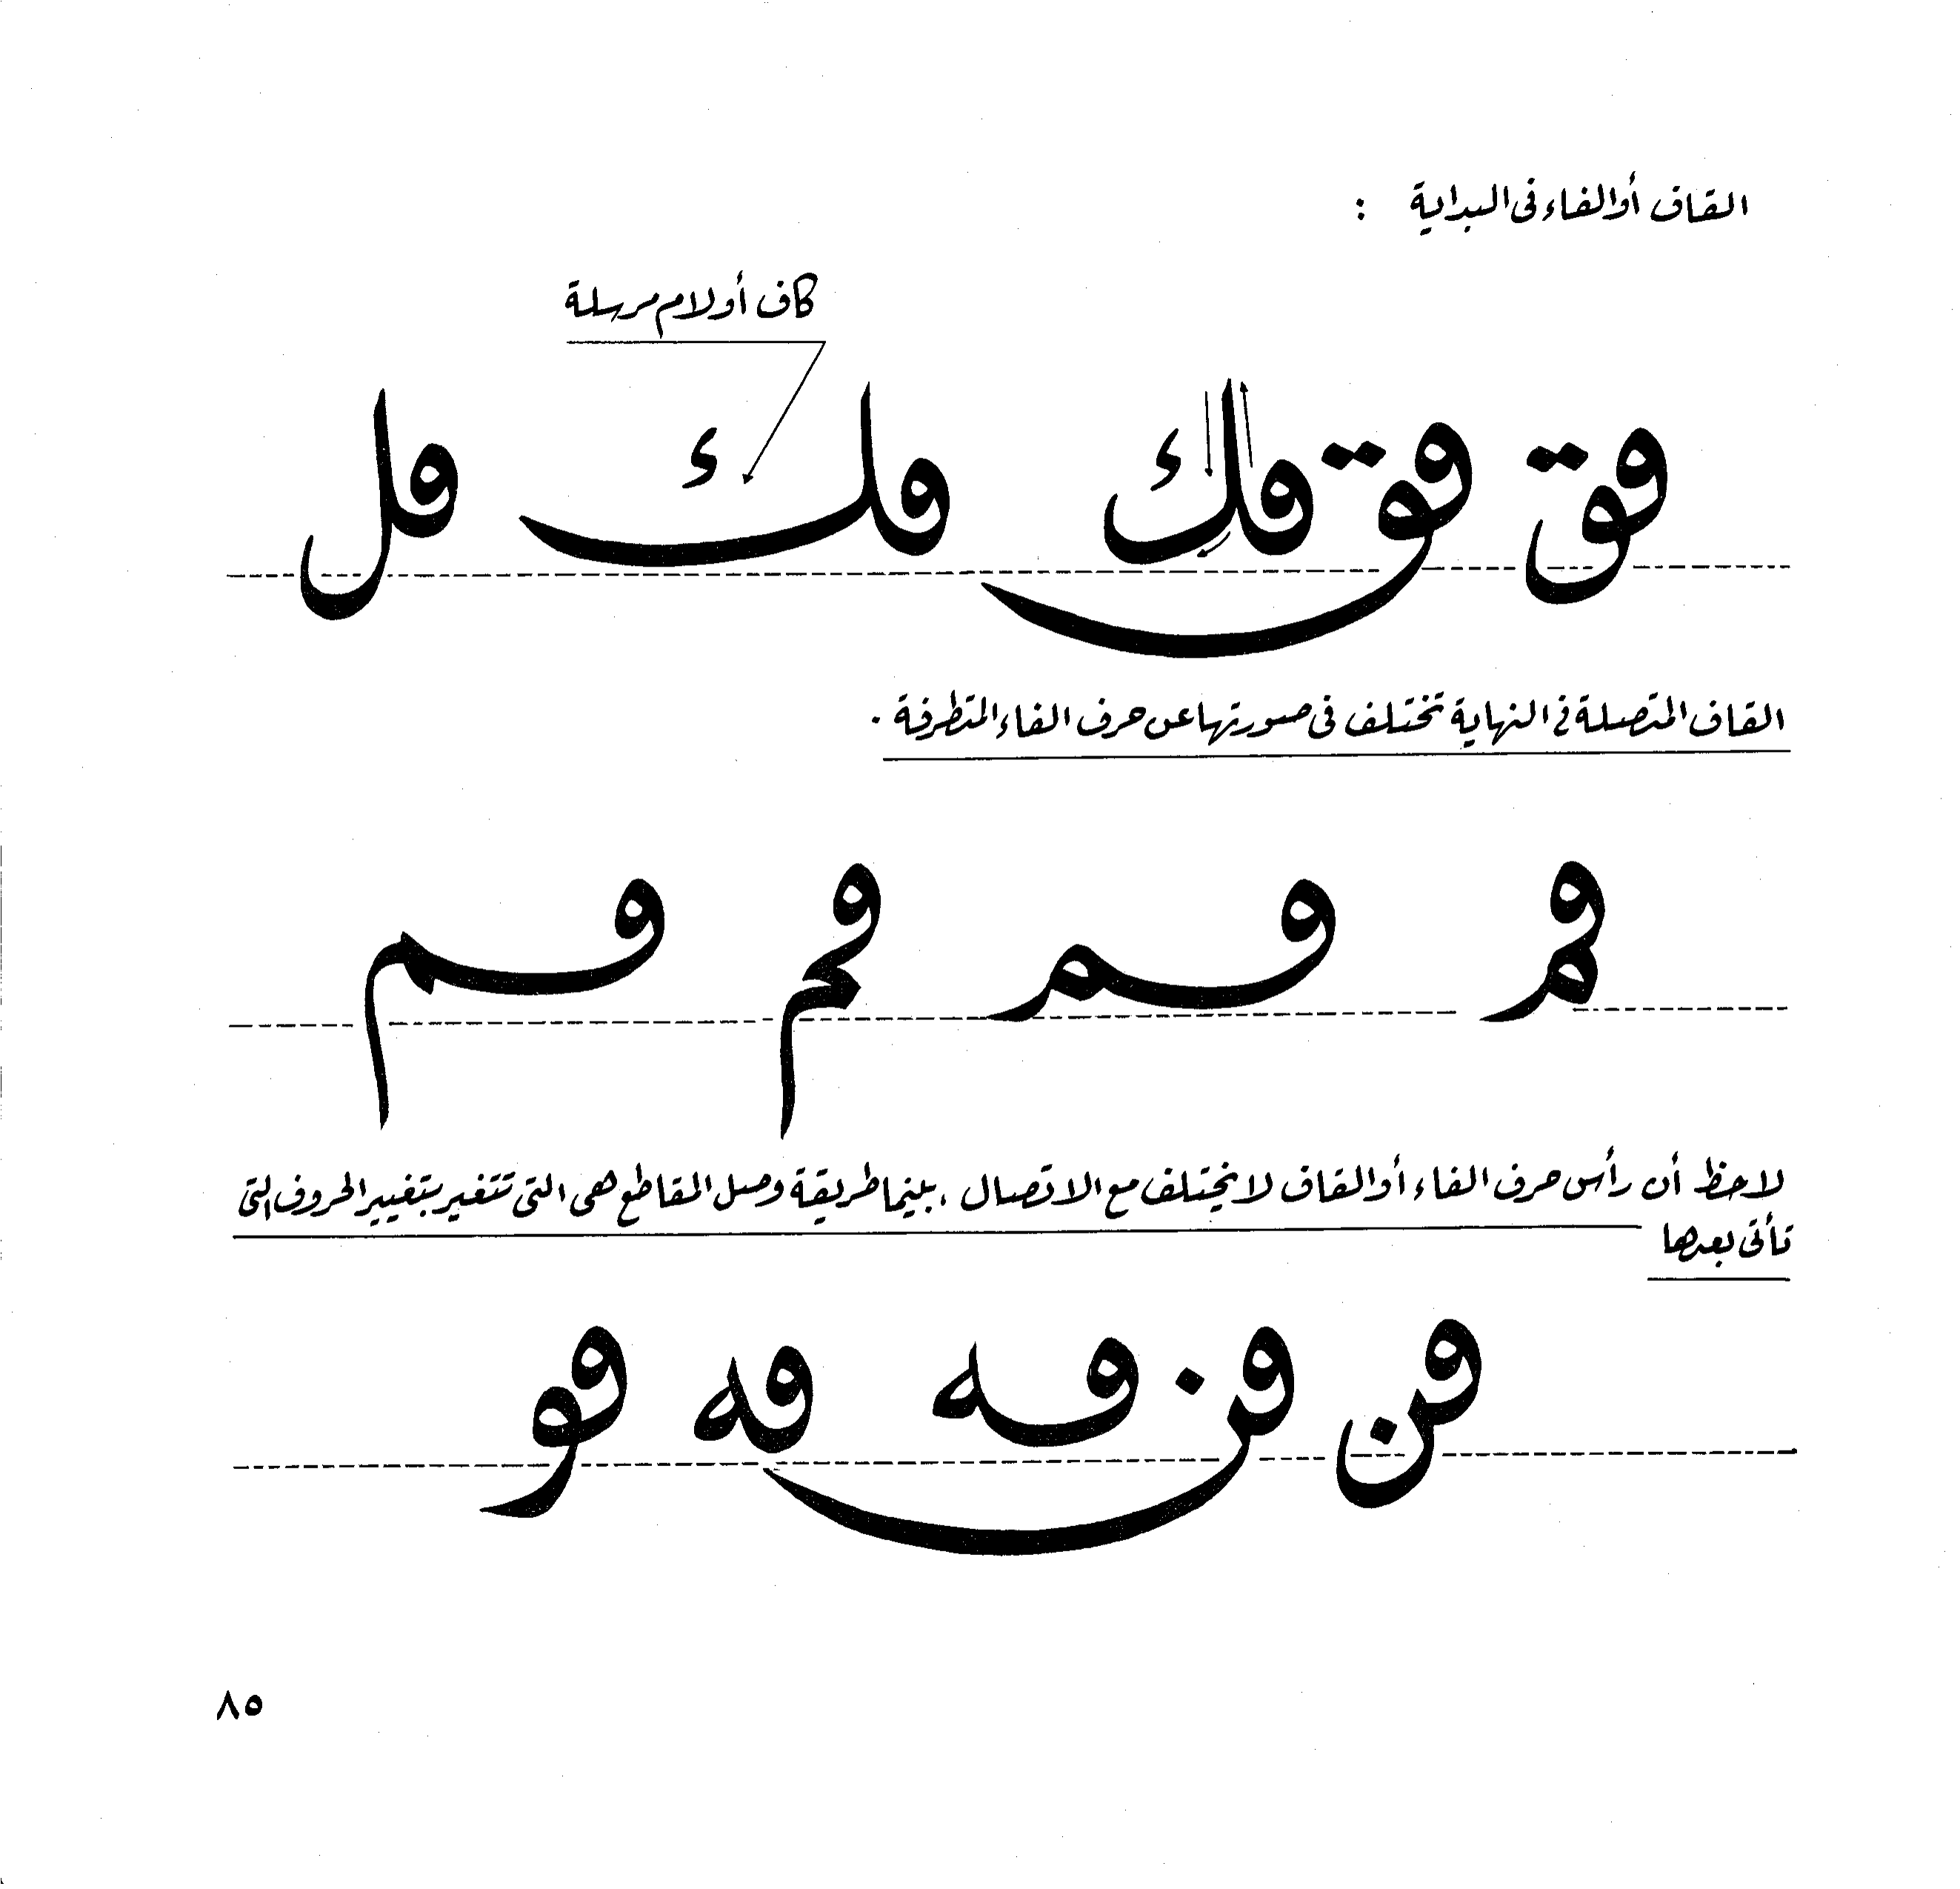 القاف أو الفاء في البداية :
كاف أو لام مرسلة
فق فق فك فك فل
القاف المتصلة في النهاية تختلف في صورتها عن حرف الفاء المتطرفة .
فم فم فم فم
لاحظ أن رأس حرف الفاء أو القاف لا يختلف مع الاتصال ، بينما طريقة وصل المقاطع هي التي تتغير بتغيير الحروف التي
تأتي بعدها
فن فن فه فه فو
٨٥